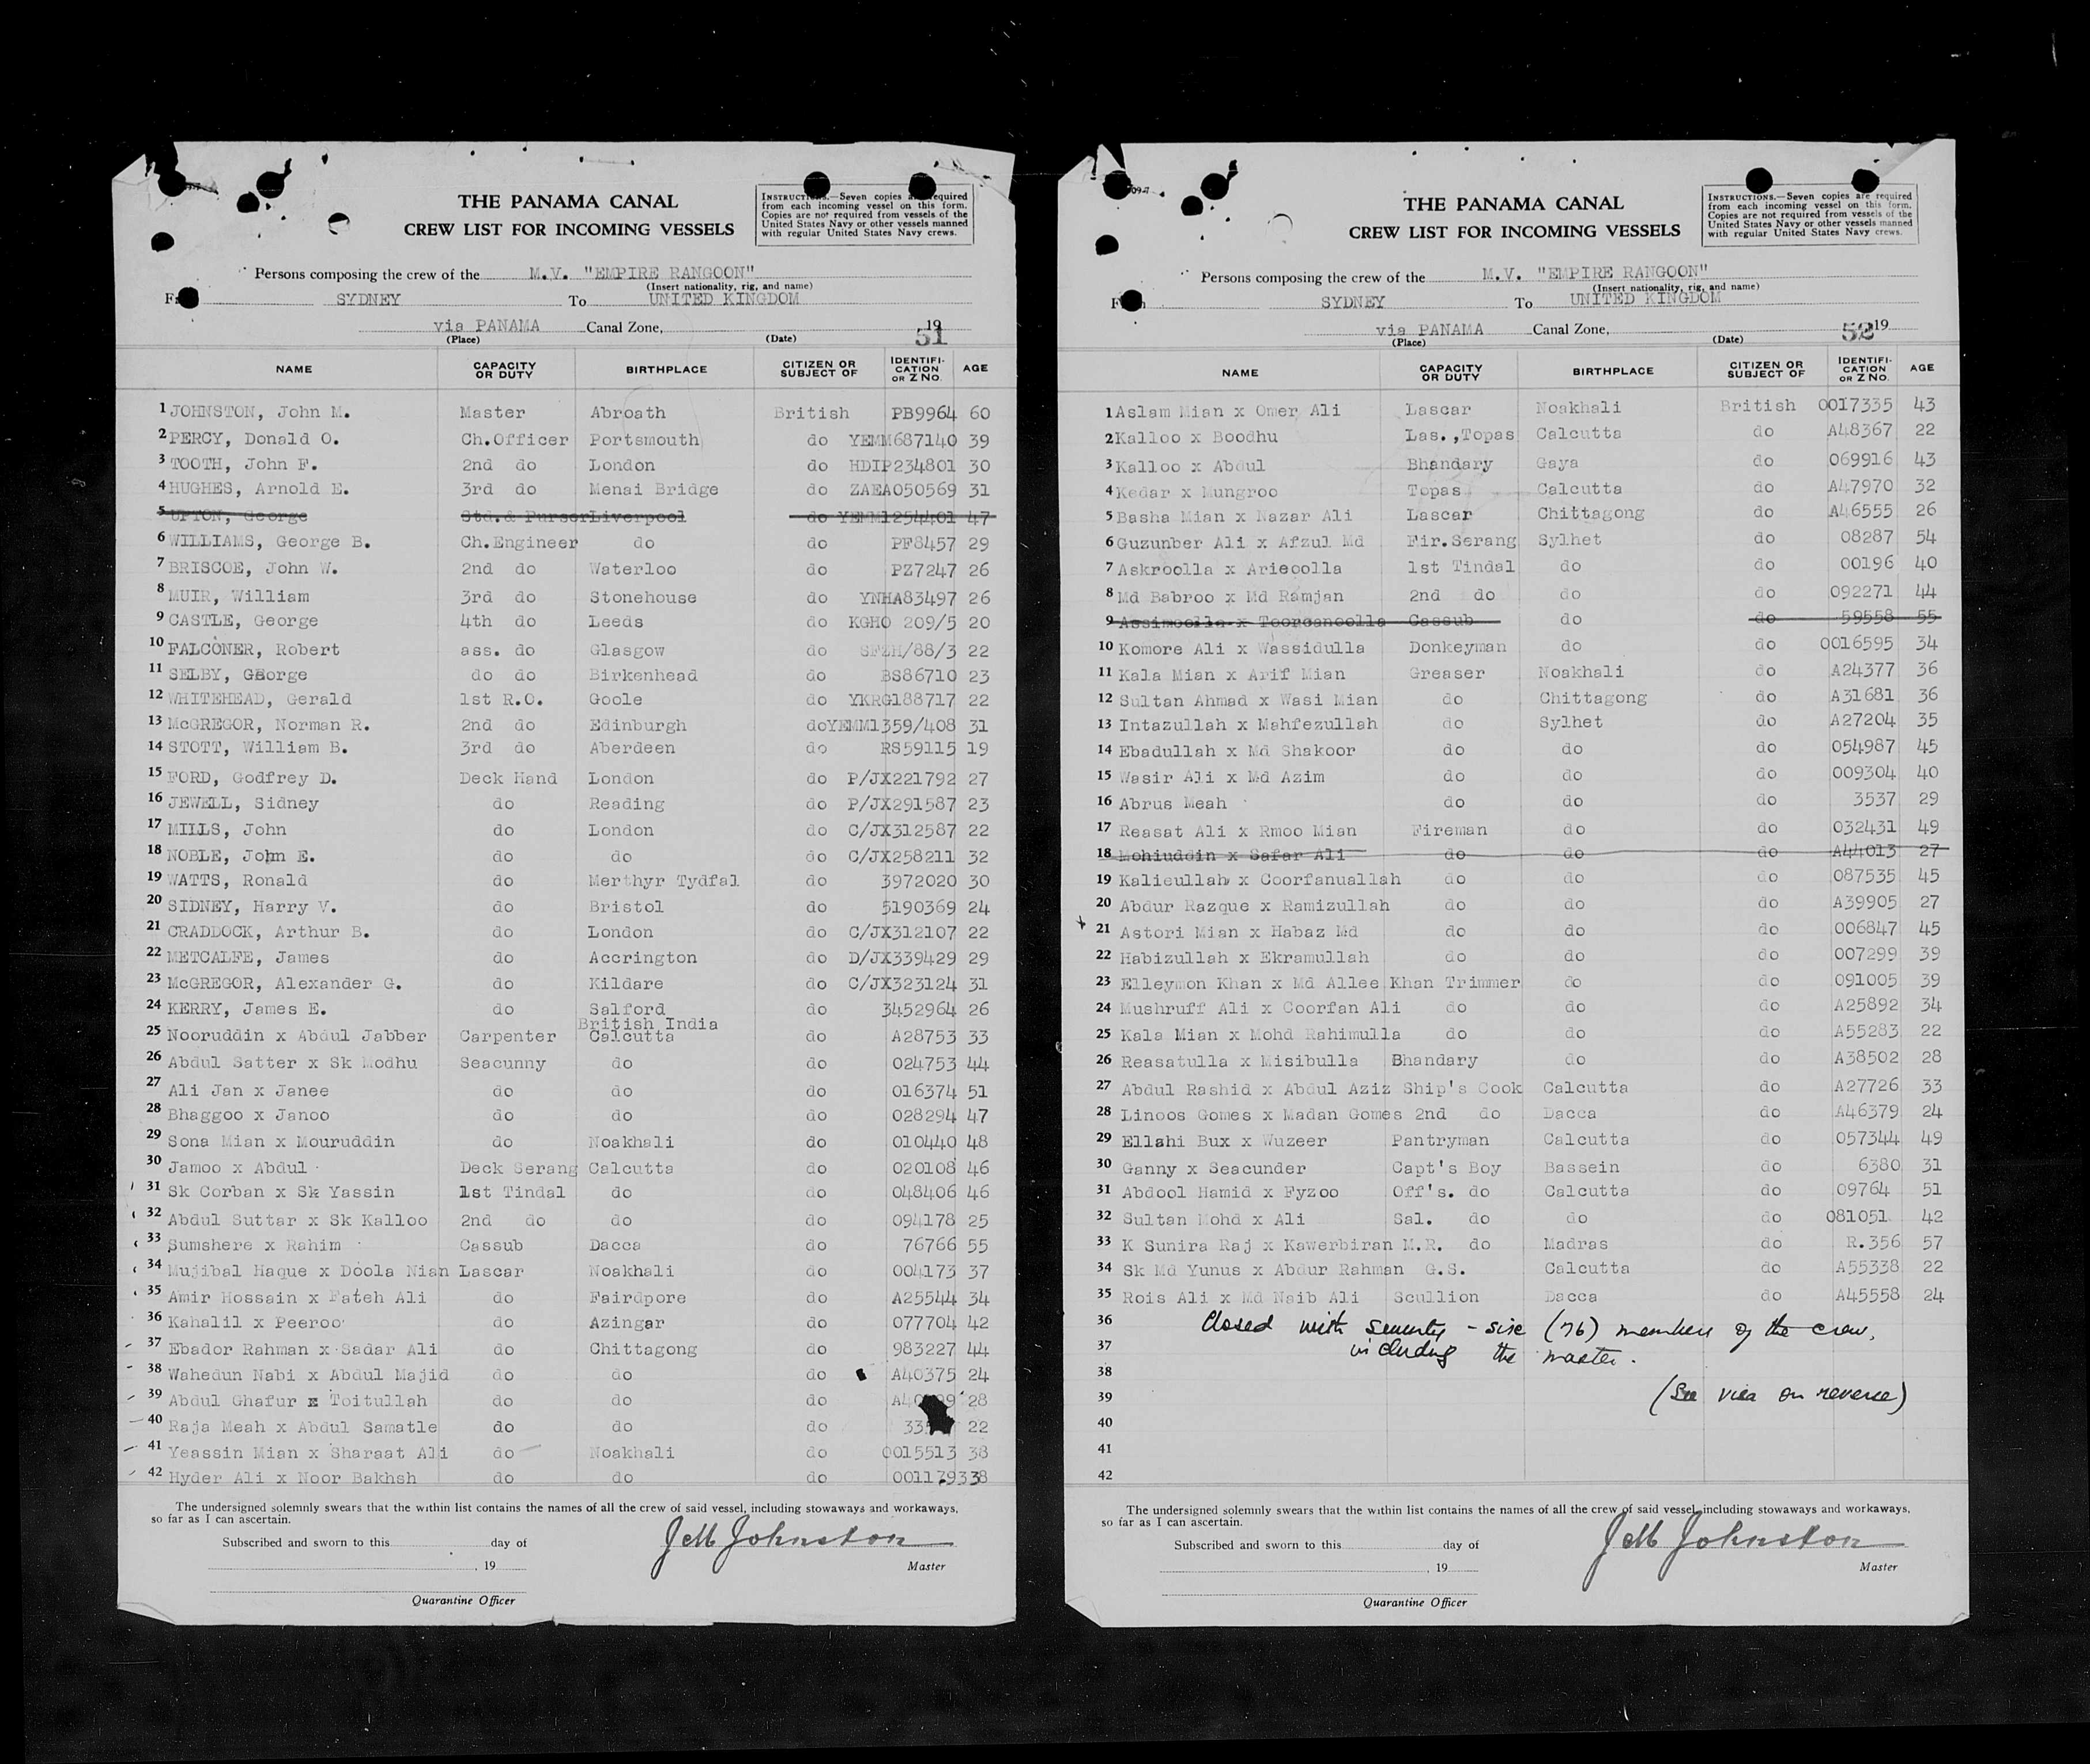 THE PANAMA CANAL
CREW LIST FOR INCOMING VESSELS
INSTRUCTIONS.—Seven copies are required
from each incoming vessel on this form.
Copies are not required from vessels of the
United States Navy or other vessels manned
with regular United States Navy crews.
Persons composing the crew of the M.V. "EMPIRE RANGOON"
(Insert nationality, rig, and name)
SYDNEY To UNITED KINGDOM
via PANAMA Canal Zone, 19
(Place) (Date) 51
NAME CAPACITY OR DUTY BIRTHPLACE CITIZEN OR SUBJECT OF IDENTIFICATION OR Z NO. AGE
1 JOHNSTON, John M. Master Abroath British PB9964 60
2 PERCY, Donald O. Ch.Officer Portsmouth do YEMM687140 39
3 TOOTH, John F. 2nd do London do HDIP234801 30
4 HUGHES, Arnold E. 3rd do Menai Bridge do ZAEA050569 31
5 UPTON, George Std.& Purser Liverpool do YEMM1254401 47
6 WILLIAMS, George B. Ch.Engineer do do PF8457 29
7 BRISCOE, John W. 2nd do Waterloo do PZ7247 26
8 MUIR, William 3rd do Stonehouse do YNHA83497 26
9 CASTLE, George 4th do Leeds do KGHO 209/5 20
10 FALCONER, Robert ass. do Glasgow do /88/3 22
11 SELBY, George do do Birkenhead do BS86710 23
12 WHITEHEAD, Gerald 1st R.O. Goole do YKRG188717 22
13 McGREGOR, Norman R. 2nd do Edinburgh do YEMM1359/408 31
14 STOTT, William B. 3rd do Aberdeen do RS59115 19
15 FORD, Godfrey D. Deck Hand London do P/JX221792 27
16 JEWELL, Sidney do Reading do P/JX291587 23
17 MILLS, John do London do C/JX312587 22
18 NOBLE, John E. do do do C/JX258211 32
19 WATTS, Ronald do Merthyr Tydfal do 3972020 30
20 SIDNEY, Harry V. do Bristol do 5190369 24
21 CRADDOCK, Arthur B. do London do C/JX312107 22
22 METCALFE, James do Accrington do D/JX339429 29
23 McGREGOR, Alexander G. do Kildare do C/JX323124 31
24 KERRY, James E. do Salford do 3452964 26
British India
25 Nooruddin x Abdul Jabber Carpenter Calcutta do A28753 33
26 Abdul Satter x Sk Modhu Seacunny do do 024753 44
27 Ali Jan x Janee do do do 016374 51
28 Bhaggoo x Janoo do do do 028294 47
29 Sona Mian x Mouruddin do Noakhali do 010440 48
30 Jamoo x Abdul Deck Serang Calcutta do 020108 46
31 Sk Corban x Sk Yassin 1st Tindal do do 048406 46
32 Abdul Suttar x Sk Kalloo 2nd do do do 094178 25
33 Sumshere x Rahim Cassub Dacca do 76766 55
34 Mujibal Haque x Doola Nian Lascar Noakhali do 004173 37
35 Amir Hossain x Fateh Ali do Fairdpore do A25544 34
36 Kahalil x Peeroo do Azingar do 077704 42
37 Ebador Rahman x Sadar Ali do Chittagong do 983227 44
38 Wahedun Nabi x Abdul Majid do do do A40375 24
39 Abdul Ghafur x Toitullah do do do 28
40 Raja Meah x Abdul Samatle do do do 22
41 Yeassin Mian x Sharaat Ali do Noakhali do 0015513 38
42 Hyder Ali x Noor Bakhsh do do do 0011793 38
The undersigned solemnly swears that the within list contains the names of all the crew of said vessel, including stowaways and workaways,
so far as I can ascertain.
Subscribed and sworn to this day of JM Johnston
, 19 Master
Quarantine Officer
THE PANAMA CANAL
CREW LIST FOR INCOMING VESSELS
INSTRUCTIONS.—Seven copies are required
from each incoming vessel on this form.
Copies are not required from vessels of the
United States Navy or other vessels manned
with regular United States Navy crews.
Persons composing the crew of the M.V. "EMPIRE RANGOON"
(Insert nationality, rig, and name)
SYDNEY To UNITED KINGDOM
via PANAMA Canal Zone, 52 19
(Place) (Date)
NAME CAPACITY OR DUTY BIRTHPLACE CITIZEN OR SUBJECT OF IDENTIFICATION OR Z NO. AGE
1 Aslam Mian x Omer Ali Lascar Noakhali British 0017335 43
2 Kalloo x Boodhu Las.,Topas Calcutta do A48367 22
3 Kalloo x Abdul Bhandary Gaya do 069916 43
4 Kedar x Mungroo Topas Calcutta do A47970 32
5 Basha Mian x Nazar Ali Lascar Chittagong do A46555 26
6 Guzunber Ali x Afzul Md Fir.Serang Sylhet do 08287 54
7 Askroolla x Arieoolla 1st Tindal do do 00196 40
8 Md Babroo x Md Ramjan 2nd do do do 092271 44
9 Assimoolla x Toorcanoolla Cassub do do 59558 55
10 Komore Ali x Wassidulla Donkeyman do do 0016595 34
11 Kala Mian x Arif Mian Greaser Noakhali do A24377 36
12 Sultan Ahmad x Wasi Mian do Chittagong do A31681 36
13 Intazullah x Mahfezullah do Sylhet do A27204 35
14 Ebadullah x Md Shakoor do do do 054987 45
15 Wasir Ali x Md Azim do do do 009304 40
16 Abrus Meah do do do 3537 29
17 Reasat Ali x Rmoo Mian Fireman do do 032431 49
18 Mohiuddin x Safar Ali do do do A44013 27
19 Kalieullah x Coorfanuallah do do do 087535 45
20 Abdur Razque x Ramizullah do do do A39905 27
21 Astori Mian x Habaz Md do do do 006847 45
22 Habizullah x Ekramullah do do do 007299 39
23 Elleymon Khan x Md Allee Khan Trimmer do do 091005 39
24 Mushruff Ali x Coorfan Ali do do do A25892 34
25 Kala Mian x Mohd Rahimulla do do do A55283 22
26 Reasatulla x Misibulla Bhandary do do A38502 28
27 Abdul Rashid x Abdul Aziz Ship's Cook Calcutta do A27726 33
28 Linoos Gomes x Madan Gomes 2nd do Dacca do A46379 24
29 Ellahi Bux x Wuzeer Pantryman Calcutta do 057344 49
30 Ganny x Seacunder Capt's Boy Bassein do 6380 31
31 Abdool Hamid x Fyzoo Off's. do Calcutta do 09764 51
32 Sultan Mohd x Ali Sal. do do do 081051 42
33 K Sunira Raj x Kawerbiran M.R. do Madras do R.356 57
34 Sk Md Yunus x Abdur Rahman G.S. Calcutta do A55338 22
35 Rois Ali x Md Naib Ali Scullion Dacca do A45558 24
36 Closed with seventy-six (76) members of the crew,
37 including the master.
38
39 (See visa on reverse)
40
41
42
The undersigned solemnly swears that the within list contains the names of all the crew of said vessel, including stowaways and workaways,
so far as I can ascertain.
Subscribed and sworn to this day of JM Johnston
, 19 Master
Quarantine Officer